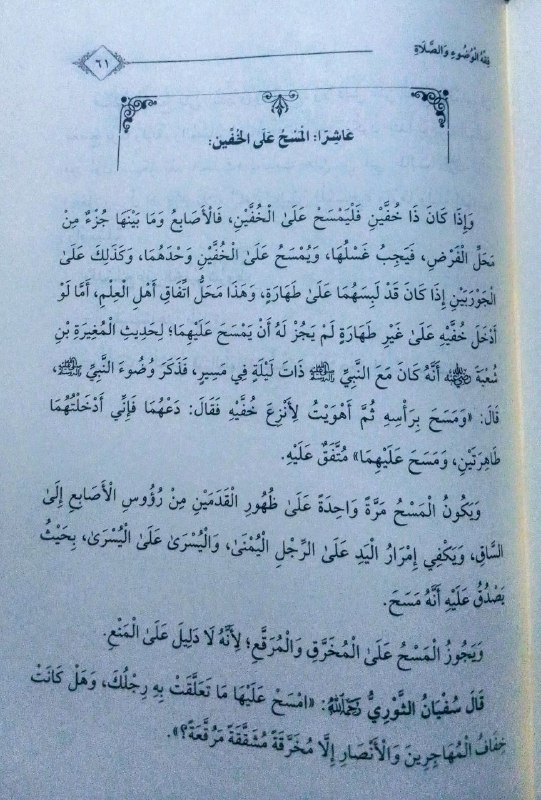 فِقْهُ الْوُضُوءِ وَالصَّلَاةِ
٦١
عَاشِرًا: الْمَسْحُ عَلَى الْخُفَّيْنِ:
وَإِذَا كَانَ ذَا خُفَّيْنِ فَلْيَمْسَحْ عَلَىٰ الْخُفَّيْنِ، فَالْأَصَابِعُ وَمَا بَيْنَهَا جُزْءٌ مِنْ
مَحَلِّ الْفَرْضِ، فَيَجِبُ غَسْلُهَا، وَيُمْسَحُ عَلَىٰ الْخُفَّيْنِ وَحْدَهُمَا، وَكَذَلِكَ عَلَىٰ
الْجَوْرَبَيْنِ إِذَا كَانَ قَدْ لَبِسَهُمَا عَلَىٰ طَهَارَةٍ، وَهَذَا مَحَلُّ اتِّفَاقِ أَهْلِ الْعِلْمِ، أَمَّا لَوْ
أَدْخَلَ خُفَّيْهِ عَلَىٰ غَيْرِ طَهَارَةٍ لَمْ يَجُزْ لَهُ أَنْ يَمْسَحَ عَلَيْهِمَا؛ لِحَدِيثِ الْمُغِيرَةِ بْنِ
شُعْبَةَ رضي الله عنه أَنَّهُ كَانَ مَعَ النَّبِيِّ ﷺ ذَاتَ لَيْلَةٍ فِي مَسِيرٍ، فَذَكَرَ وُضُوءَ النَّبِيِّ ﷺ،
قَالَ: «وَمَسَحَ بِرَأْسِهِ ثُمَّ أَهْوَيْتُ لِأَنْزِعَ خُفَّيْهِ فَقَالَ: دَعْهُمَا فَإِنِّي أَدْخَلْتُهُمَا
طَاهِرَتَيْنِ، وَمَسَحَ عَلَيْهِمَا» مُتَّفَقٌ عَلَيْهِ.
وَيَكُونُ الْمَسْحُ مَرَّةً وَاحِدَةً عَلَىٰ ظُهُورِ الْقَدَمَيْنِ مِنْ رُؤُوسِ الْأَصَابِعِ إِلَىٰ
السَّاقِ، وَيَكْفِي إِمْرَارُ الْيَدِ عَلَىٰ الرِّجْلِ الْيُمْنَىٰ، وَالْيُسْرَىٰ عَلَىٰ الْيُسْرَىٰ، بِحَيْثُ
يَصْدُقُ عَلَيْهِ أَنَّهُ مَسَحَ.
وَيَجُوزُ الْمَسْحُ عَلَىٰ الْمُخَرَّقِ وَالْمُرَقَّعِ؛ لِأَنَّهُ لَا دَلِيلَ عَلَىٰ الْمَنْعِ.
قَالَ سُفْيَانُ الثَّوْرِيُّ رَحِمَهُ اللَّهُ: «امْسَحْ عَلَيْهَا مَا تَعَلَّقَتْ بِهِ رِجْلُكَ، وَهَلْ كَانَتْ
خِفَافُ الْمُهَاجِرِينَ وَالْأَنْصَارِ إِلَّا مُخَرَّقَةً مُشَقَّقَةً مُرَقَّعَةً؟».